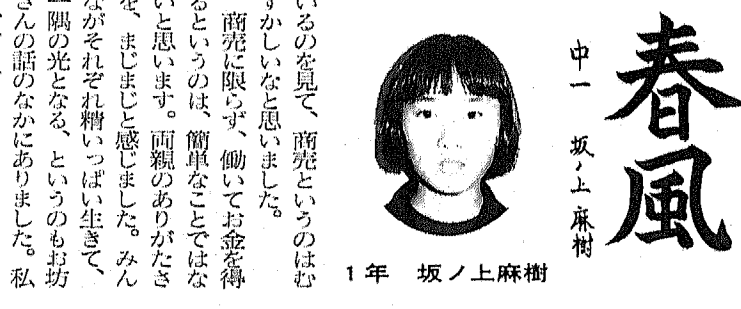 春風
中一 坂ノ上麻樹
1年 坂ノ上麻樹
いるのを見て、商売というのはむ
ずかしいなと思いました。
商売に限らず、働いてお金を得
るというのは、簡単なことではな
いと思います。両親のありがたさ
を、まじまじと感じました。みん
ながそれぞれ精いっぱい生きて、
一隅の光となる、というのもお坊
さんの話のなかにありました。私